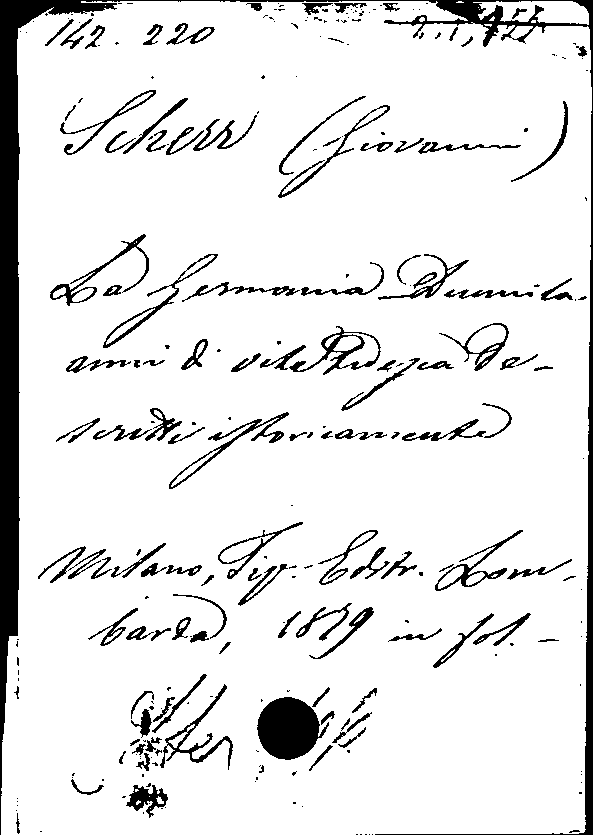 142. 220
Scherr (Giovanni)
La Germania Duemila
anni di vita tedesca de-
scritti istoricamente
Milano, Tip. Editr. Lom-
barda, 1879 in fol. -